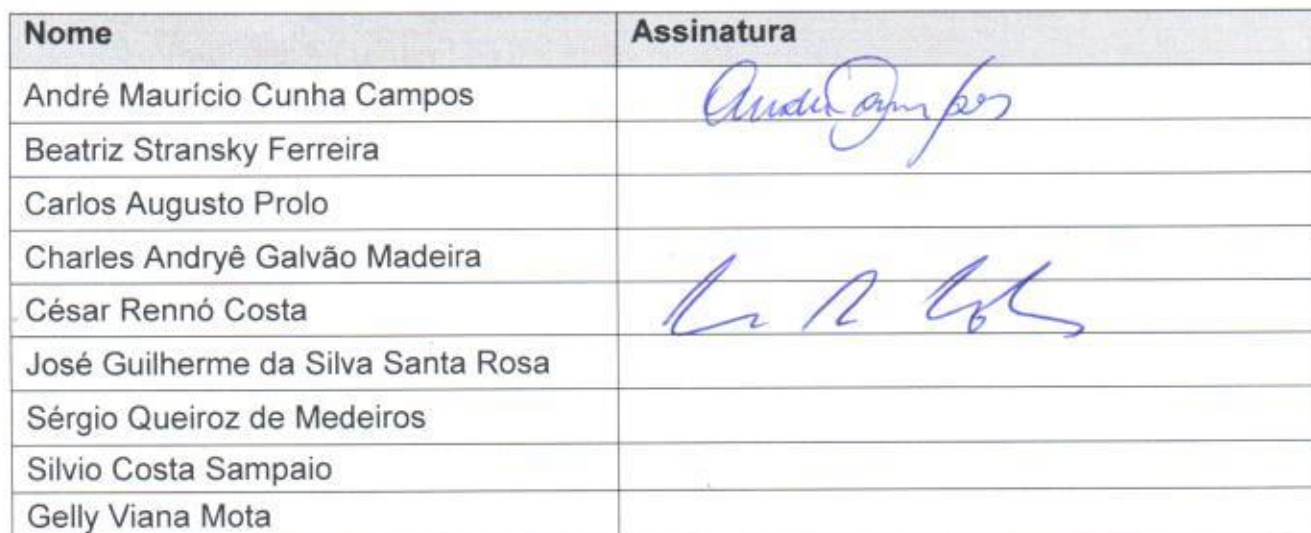 Nome Assinatura
André Maurício Cunha Campos
Beatriz Stransky Ferreira
Carlos Augusto Prolo
Charles Andryê Galvão Madeira
César Rennó Costa
José Guilherme da Silva Santa Rosa
Sérgio Queiroz de Medeiros
Silvio Costa Sampaio
Gelly Viana Mota